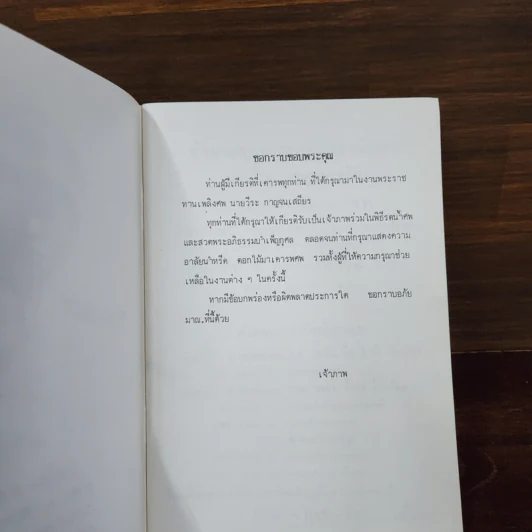 ขอกราบขอบพระคุณ
ท่านผู้มีเกียรติที่เคารพทุกท่าน ที่ได้กรุณามาในงานพระราช
ทานเพลิงศพ นายวีระ กาญจนเสถียร
ทุกท่านที่ได้กรุณาให้เกียรติรับเป็นเจ้าภาพร่วมในพิธีรดน้ำศพ
และสวดพระอภิธรรมบำเพ็ญกุศล ตลอดจนท่านที่กรุณาแสดงความ
อาลัยนำหรีด ดอกไม้มาเคารพศพ รวมทั้งผู้ที่ให้ความกรุณาช่วย
เหลือในงานต่าง ๆ ในครั้งนี้
หากมีข้อบกพร่องหรือผิดพลาดประการใด ขอกราบอภัย
มาณ.ที่นี้ด้วย
เจ้าภาพ